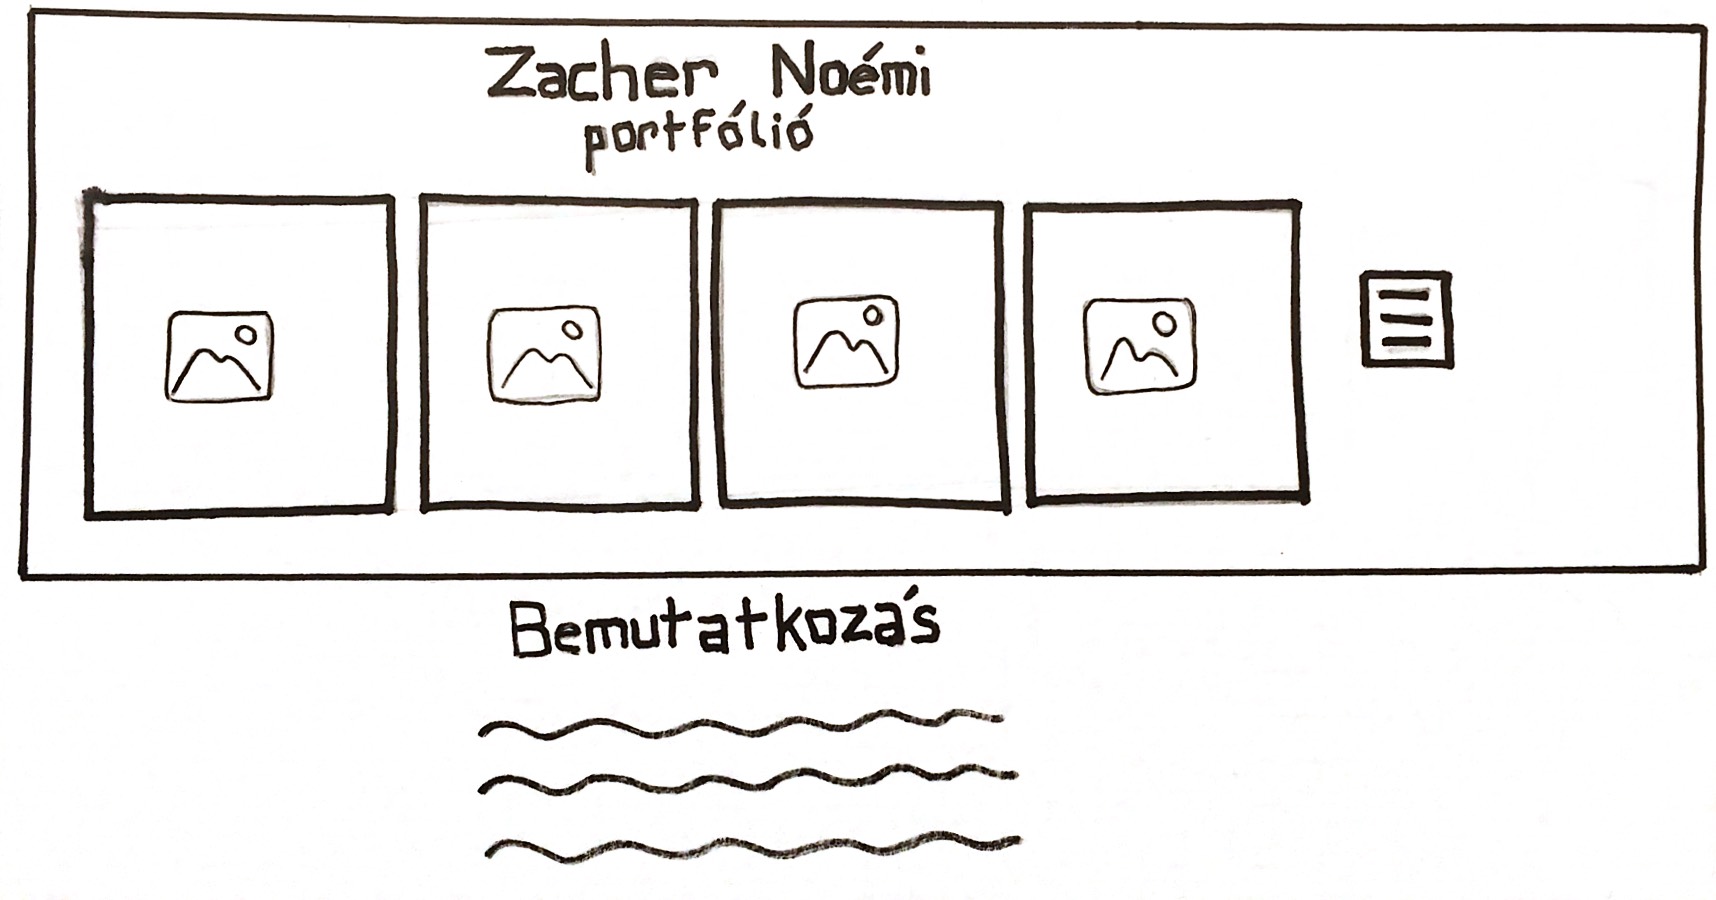 Zacher Noémi
portfólió
Bemutatkozás